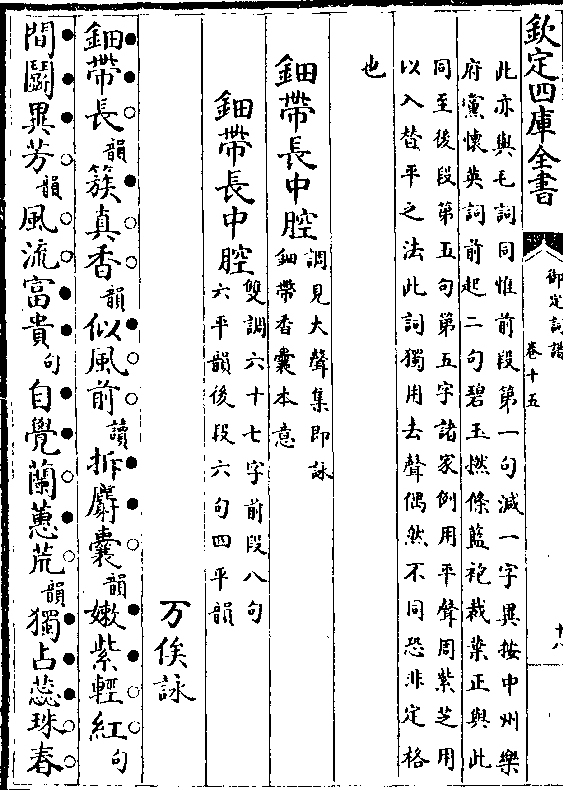 欽定四庫全書
御定詞譜
卷十五
十八
此亦與毛詞同惟前段第一句減一字異按中州樂
府党懷英詞前起二句碧玉撚條藍袍裁葉正與此
同至後段第五句第五字諸家例用平聲周紫芝用
以入替平之法此詞獨用去聲偶然不同恐非定格
也
鈿帶長中腔
調見大聲集即詠
鈿帶香囊本意
鈿帶長中腔
雙調六十七字前段八句
六平韻後段六句四平韻
万俟詠
鈿帶長韻簇真香韻似風前讀拆麝囊韻嫩紫輕紅句
間鬬異芳韻風流富貴句自覺蘭蕙荒韻獨占蕊珠春